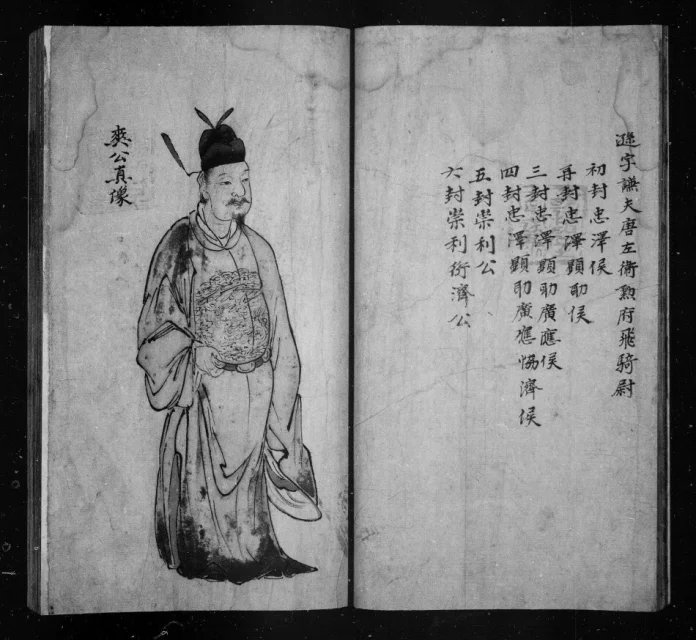 遜字謙夫唐左衛勲府飛騎尉
初封忠澤侯
再封忠澤顯助侯
三封忠澤顯助廣應侯
四封忠澤顯助廣應恊濟侯
五封崇利公
六封崇利衍濟公
爽公真像